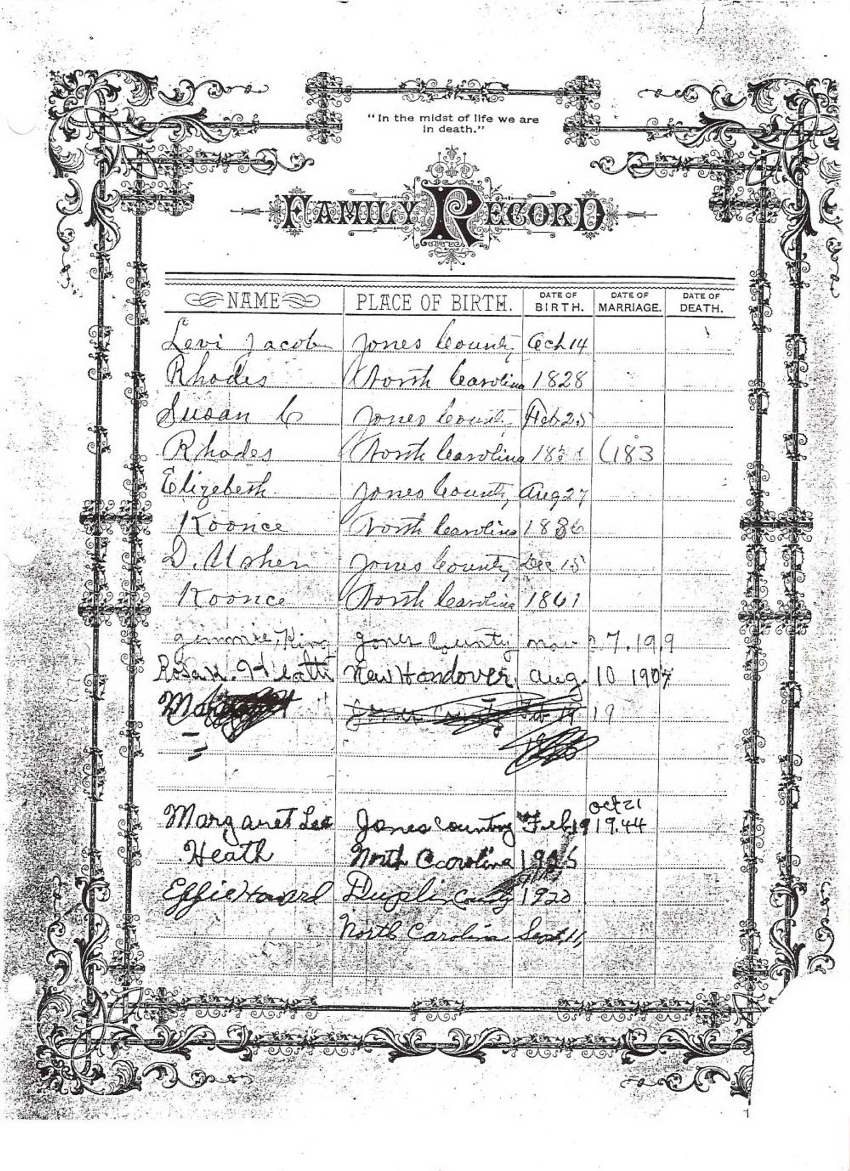 "In the midst of life we are
in death."
FAMILY RECORD
NAME PLACE OF BIRTH. DATE OF BIRTH. DATE OF MARRIAGE. DATE OF DEATH.
Levi Jacob Jones County Oct 14
Rhodes North Carolina 1828
Susan C Jones County Feb 25
Rhodes North Carolina (183
Elizebeth Jones County Aug 27
Koonce North Carolina 1836
D. Usher Jones County Dec 15
Koonce North Carolina 1861
Jones County nov 7. 19 9
Rosa K. Heath New Handover aug. 10 1907
19
oct 21
Margaret Lee Jones country Feb 19 19.44
Heath North Carolina
Effie Howard Duplin County 1920
North Carolina Sept. 11,
1